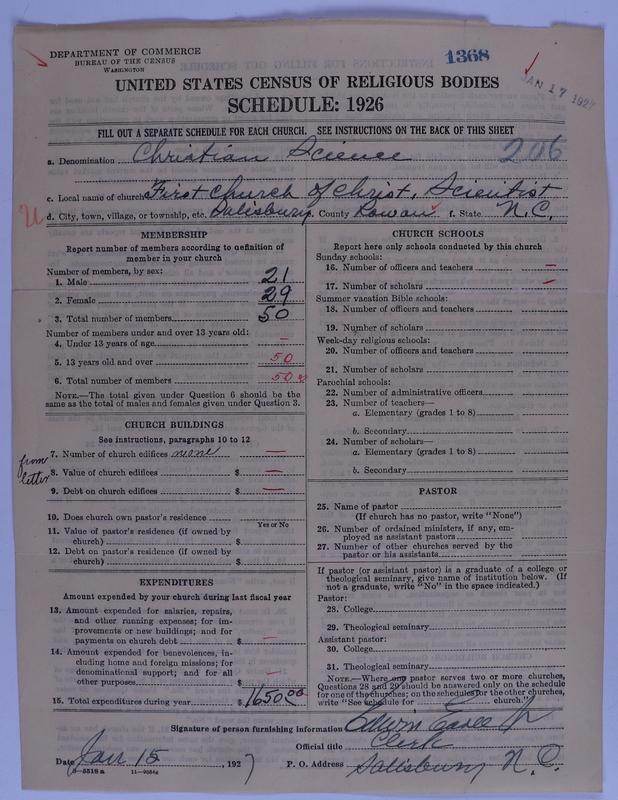 DEPARTMENT OF COMMERCE
BUREAU OF THE CENSUS
WASHINGTON
1368
JAN 17 1927
UNITED STATES CENSUS OF RELIGIOUS BODIES
SCHEDULE: 1926
FILL OUT A SEPARATE SCHEDULE FOR EACH CHURCH. SEE INSTRUCTIONS ON THE BACK OF THIS SHEET
a. Denomination Christian Science 206
c. Local name of church First Church of Christ, Scientist
d. City, town, village, or township, etc. Salisbury e. County Rowan f. State N.C.
MEMBERSHIP
Report number of members according to definition of
member in your church
Number of members, by sex:
1. Male 21
2. Female 29
3. Total number of members 50
Number of members under and over 13 years old:
4. Under 13 years of age —
5. 13 years old and over 50
6. Total number of members 50
NOTE.—The total given under Question 6 should be the
same as the total of males and females given under Question 3.
CHURCH BUILDINGS
See instructions, paragraphs 10 to 12
from
letter
7. Number of church edifices none —
8. Value of church edifices $ —
9. Debt on church edifices $ —
10. Does church own pastor's residence
Yes or No
11. Value of pastor's residence (if owned by
church) $
12. Debt on pastor's residence (if owned by
church) $
EXPENDITURES
Amount expended by your church during last fiscal year
13. Amount expended for salaries, repairs,
and other running expenses; for im-
provements or new buildings; and for
payments on church debt $ —
14. Amount expended for benevolences, in-
cluding home and foreign missions; for
denominational support; and for all
other purposes $ —
15. Total expenditures during year $ 1650.00
CHURCH SCHOOLS
Report here only schools conducted by this church
Sunday schools:
16. Number of officers and teachers —
17. Number of scholars —
Summer vacation Bible schools:
18. Number of officers and teachers
19. Number of scholars
Week-day religious schools:
20. Number of officers and teachers
21. Number of scholars
Parochial schools:
22. Number of administrative officers
23. Number of teachers—
a. Elementary (grades 1 to 8)
b. Secondary
24. Number of scholars—
a. Elementary (grades 1 to 8)
b. Secondary
PASTOR
25. Name of pastor
(If church has no pastor, write "None")
26. Number of ordained ministers, if any, em-
ployed as assistant pastors
27. Number of other churches served by the
pastor or his assistants
If pastor (or assistant pastor) is a graduate of a college or
theological seminary, give name of institution below. (If
not a graduate, write "No" in the space indicated.)
Pastor:
28. College
29. Theological seminary
Assistant pastor:
30. College
31. Theological seminary
NOTE.—Where one pastor serves two or more churches,
Questions 28 and 29 should be answered only on the schedule
for one of the churches; on the schedules for the other churches,
write "See schedule for church."
Signature of person furnishing information Edwin
Official title Clerk
Date Jan 15, 1927 P. O. Address Salisbury N.C.
11—9584